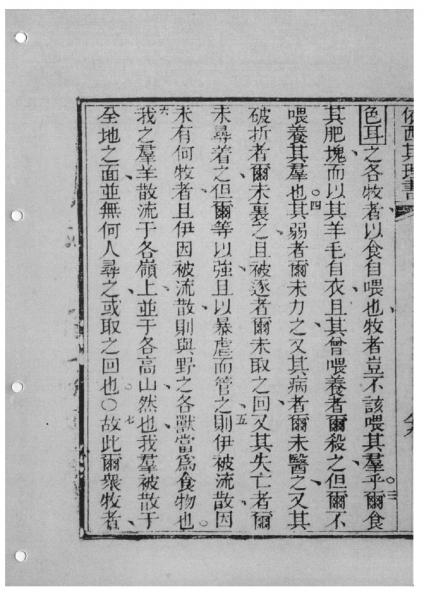 依西其理書
色耳之各牧者、以食自喂也、牧者豈不該喂其羣乎。三爾食
其肥塊、而以其羊毛自衣、且其曾喂養者、爾殺之、但爾不
喂養其羣也。四其弱者、爾未力之、又其病者、爾未醫之、又其
破折者、爾未裹之、且被逐者、爾未取之回、又其失亡者、爾
未尋着之、但爾等以強且以暴虐而管之、五則伊被流散、因
未有何牧者、且伊因被流散、則與野之各獸當爲食物也。
六我之羣羊散流于各嶺上、並于各高山然也、我羣被散于
全地之面、並無何人尋之、或取之回也。○七故此爾衆牧者、